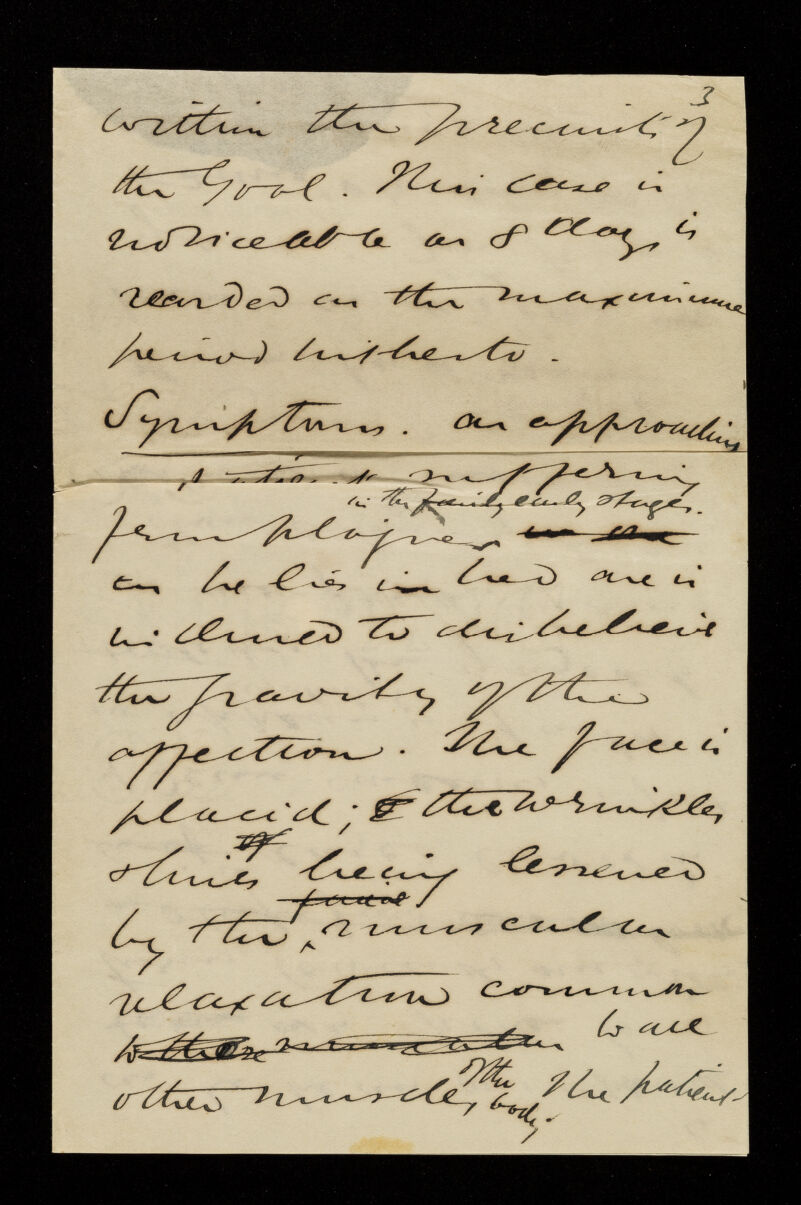 3
within the precincts of
the Gaol. This case is
noticeable as 8 days is
recorded as the maximum
period hitherto.
Symptoms. On approaching
a patient suffering
in the early stages.
from plague
as he lies in bed one is
inclined to disbelieve
the gravity of the
affection. The face is
placid; the wrinkles
of
& lines being lessened
facial
by the muscular
relaxation common
to these muscular to all
of the
other muscles body. The patient